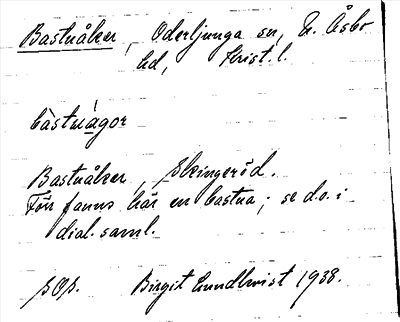 Bastuåker, Oderljunga sn, N. Åsbo
hd, Krist. l.
bàstuágor
Bastuåker, Skingeröd.
Förr fanns här en bastua; se d.o. i
dial. saml.
Birgit Lundkvist 1938.